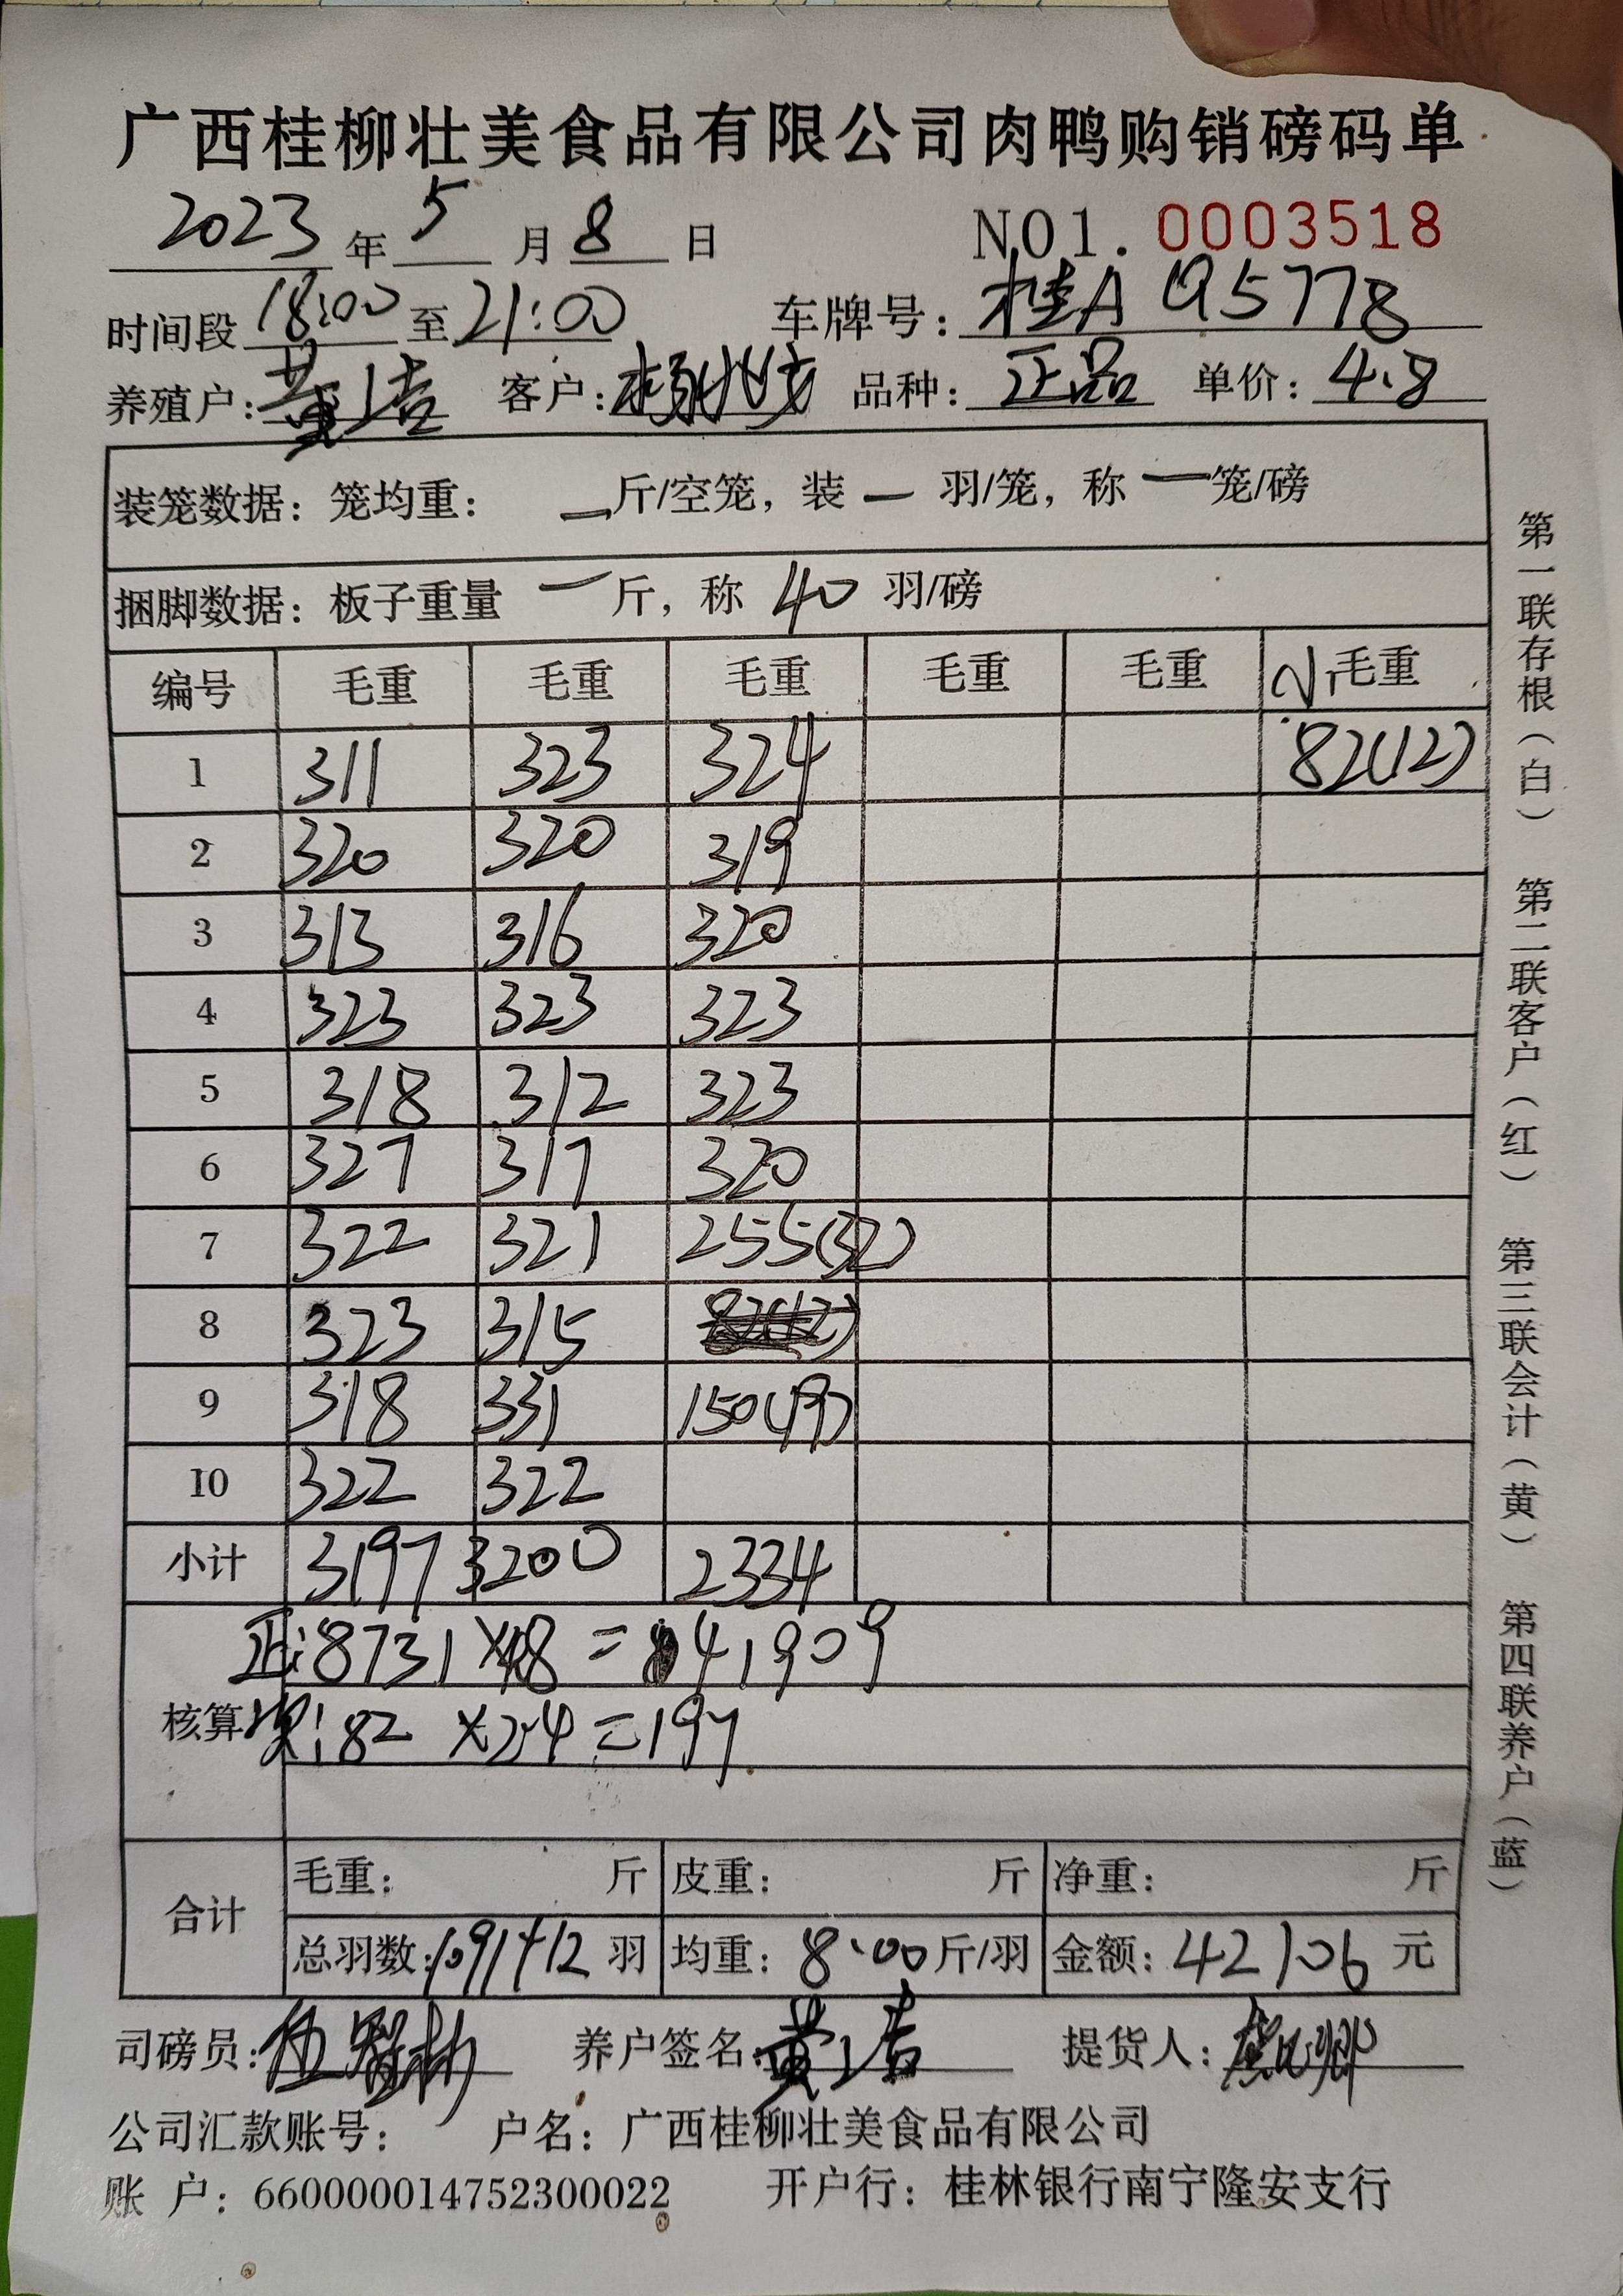 广西桂柳壮美食品有限公司肉鸭购销磅码单
2023年5月8日 NO1.0003518
时间段18:00至21:00 车牌号:桂A Q5778
养殖户:黄洁 客户: 品种:正品 单价:4.8
装笼数据:笼均重: —斤/空笼,装 — 羽/笼,称 — 笼/磅
捆脚数据:板子重量 — 斤,称 40 羽/磅
编号 毛重 毛重 毛重 毛重 毛重 小毛重
1 311 323 324 82(12)
2 320 320 319
3 313 316 320
4 323 323 323
5 318 312 323
6 327 317 320
7 322 321 255(32)
8 323 315
9 318 331 150(19)
10 322 322
小计 3197 3200 2334
正:8731×4.8=41909
核算 次:82×2.4=197
合计 毛重: 斤 皮重: 斤 净重: 斤
总羽数:1091+12羽 均重:8.00斤/羽 金额:42106元
司磅员: 养户签名:黄洁 提货人:
公司汇款账号: 户名:广西桂柳壮美食品有限公司
账 户:660000014752300022 开户行:桂林银行南宁隆安支行
第一联存根(白) 第二联客户(红) 第三联会计(黄) 第四联养户(蓝)